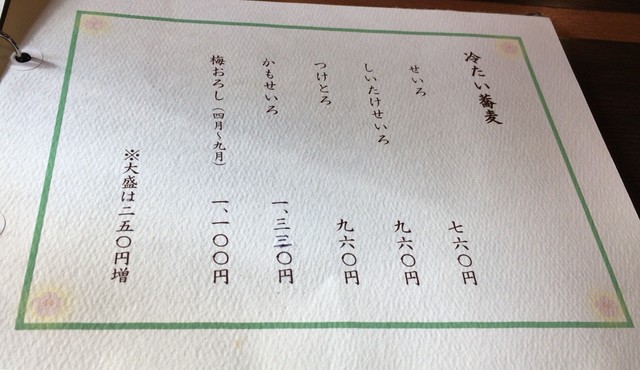 冷たい蕎麦
せいろ 七六〇円
しいたけせいろ 九六〇円
つけとろ 九六〇円
かもせいろ 一、三三〇円
梅おろし(四月~九月) 一、一〇〇円
※大盛は二五〇円増